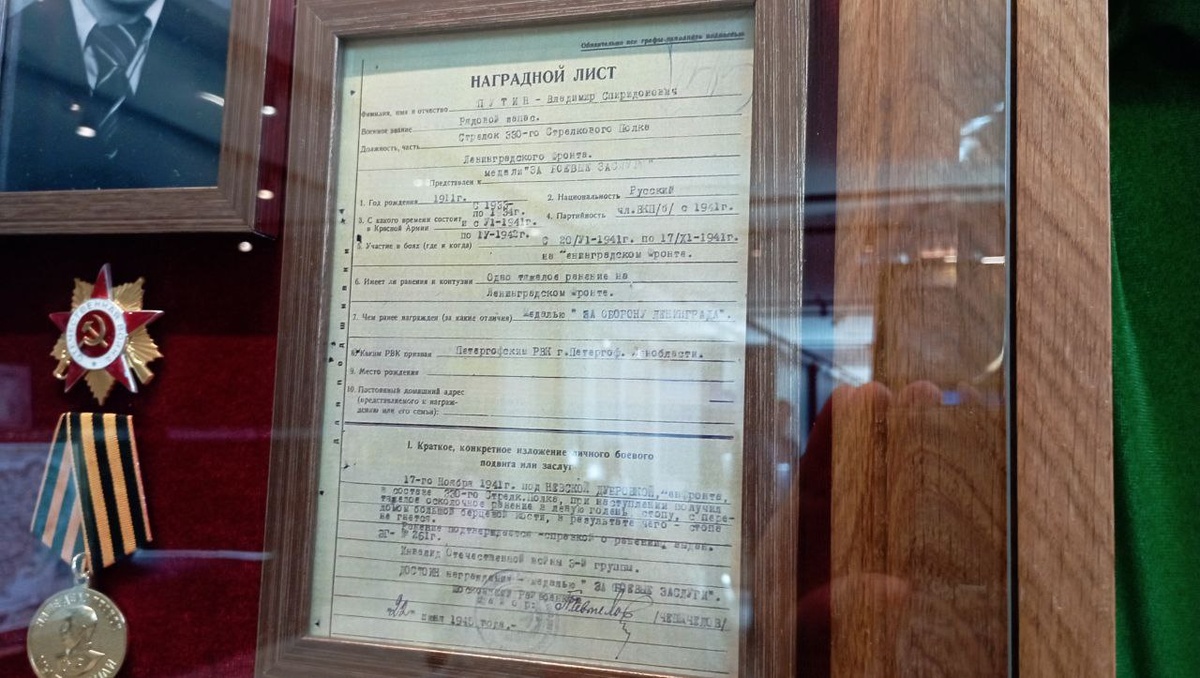 Обязательно все графы заполнять полностью
НАГРАДНОЙ ЛИСТ
Фамилия, имя и отчество ПУТИН - Владимир Спиридонович
Военное звание Рядовой запас.
Должность, часть Стрелок 330-го Стрелкового Полка
Ленинградского Фронта.
Представлен к медали "ЗА БОЕВЫЕ ЗАСЛУГИ"
1. Год рождения 1911г. 2. Национальность Русский
3. С какого времени состоит в Красной Армии С 1933- по 1934г. и с У1-1941г. по 1У-1942г. 4. Партийность чл.ВКП/б/ с 1941г.
5. Участие в боях (где и когда) С 20/У1-1941г. по 17/Х1-1941г.
на Ленинградском Фронте.
6. Имеет ли ранения и контузии Одно тяжелое ранение на
Ленинградском Фронте.
7. Чем ранее награжден (за какие отличия) медалью "ЗА ОБОРОНУ ЛЕНИНГРАДА".
8. Каким РВК призван Петергофским РВК г.Петергоф. области.
9. Место рождения
10. Постоянный домашний адрес
(представляемого к награж-
дению или его семьи):
для подшивки
I. Краткое, конкретное изложение личного боевого
подвига или заслуг
17-го Ноября 1941г. под НЕВСКОЙ ДУБРОВКОЙ, Ленфронта,
в составе 330-го Стрелк.Полка, при наступлении получил
тяжелое осколочное ранение в левую голень, стопу, с пере-
домом большой берцовой кости, в результате чего - стопа
не гнется.
Ранение подтверждается справкой о ранении, выдан.
ЭГ- № 261г.
Инвалид Отечественной войны 3-й группы.
ДОСТОИН награждения - медалью "ЗА БОЕВЫЕ ЗАСЛУГИ".
Майор /ЧЕВЫЧЕЛОВ/
22 июня 1945 года.-